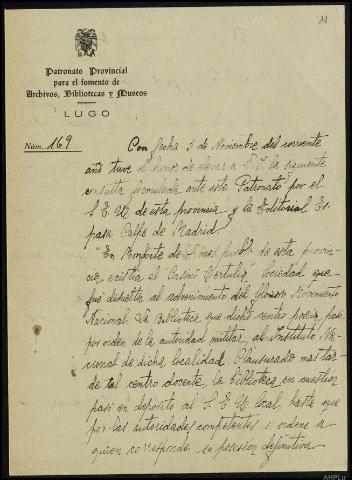 11
Patronato Provincial
para el fomento de
Archivos, Bibliotecas y Museos
LUGO
Núm. 169
Con fecha 3 de Noviembre del corriente
año tuve el honor de elevar a V.I. la siguiente
consulta formulada ante este Patronato por el
S.E.U. de esta provincia y la Editorial Es-
pasa Calpe de Madrid.
"En Monforte de Lemos pueblo de esta provin-
cia existía el Casino Tertulia, Sociedad que
fué disuelta al advenimiento del Glorioso Movimiento
Nacional. La Biblioteca que dicho centro poseía, pasó
por orden de la autoridad militar, al Instituto Na-
cional de dicha localidad. Clausurado más tar-
de tal centro docente, la biblioteca en cuestión
pasó en depósito al S.E.U. local, hasta que
por las autoridades competentes se ordene a
quien corresponde su posesión definitiva.
AHPLu